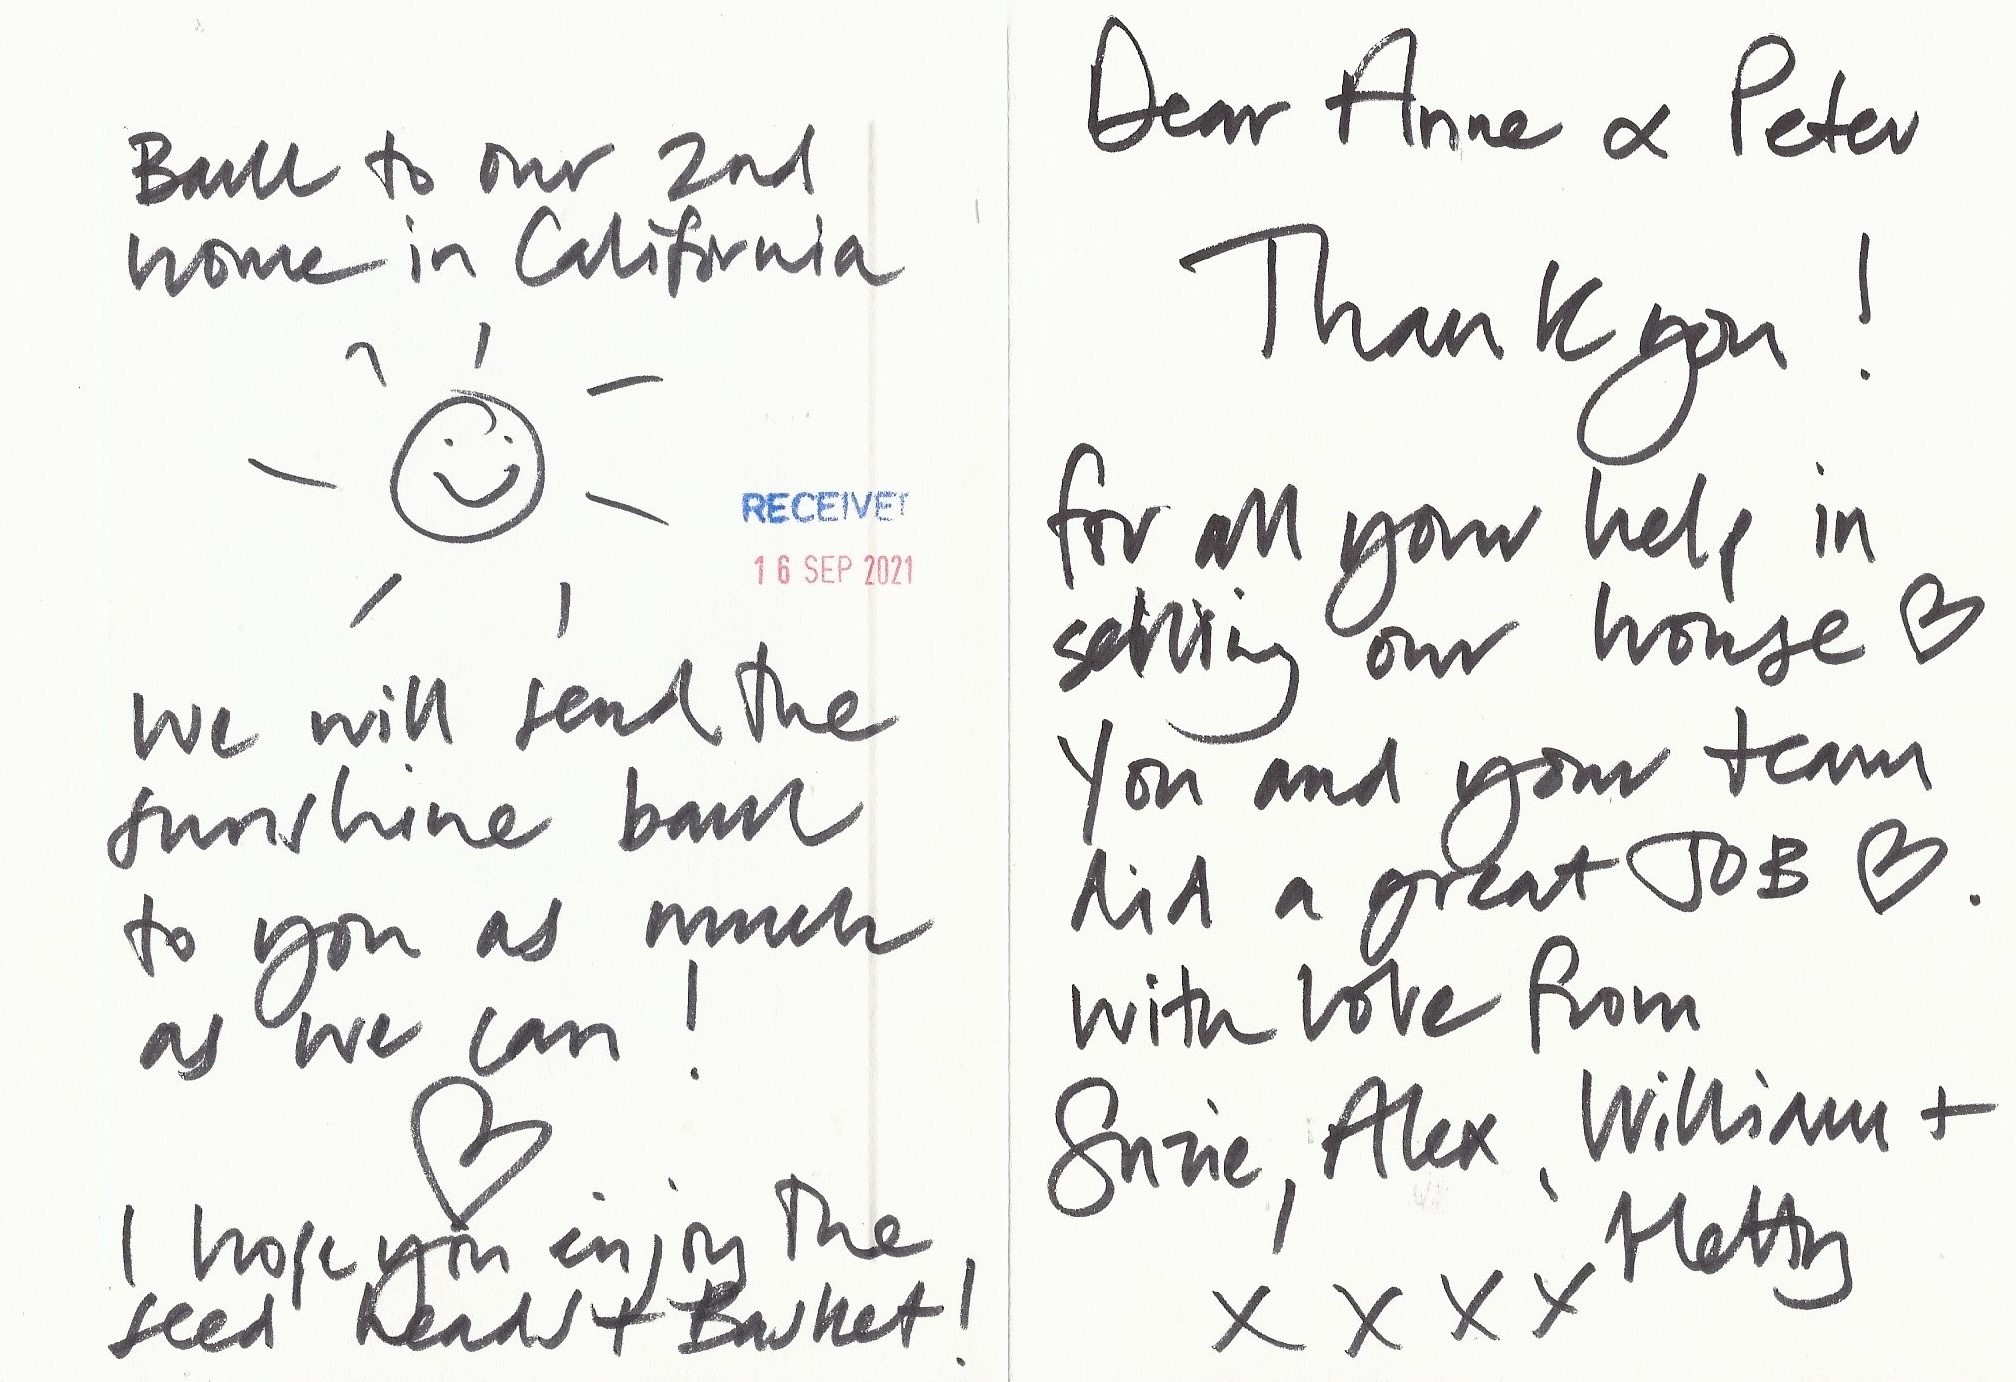 Dear Anne & Peter
Thank you!
for all your help in
selling our house ♡
You and your team
did a great JOB ♡.
with love from
Suzie, Alex, William +
Hetty
x x x x
Back to our 2nd
home in California
RECEIVED
16 SEP 2021
We will send the
sunshine back
to you as much
as we can!
♡
I hope you enjoy the
seed heads + Basket!